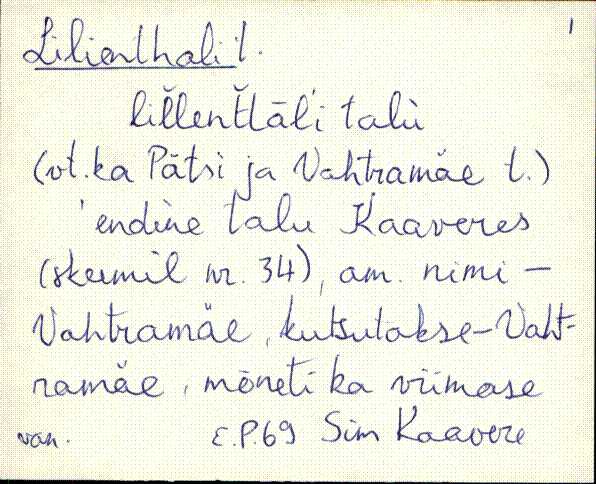 1
Lilienthali t.
lĭllenĭtāĺi talù
(vt. ka Pätsi ja Vahtramäe t.)
'endine talu Kaaveres
(skeemil nr. 34), am. nimi –
Vahtramäe, kutsutakse – Vaht-
ramäe, mõneti ka viimase
van. E.P.69 Sim Kaavere